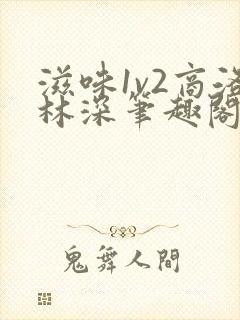 滋味1v2高洛
林深笔趣阁
鬼舞人間